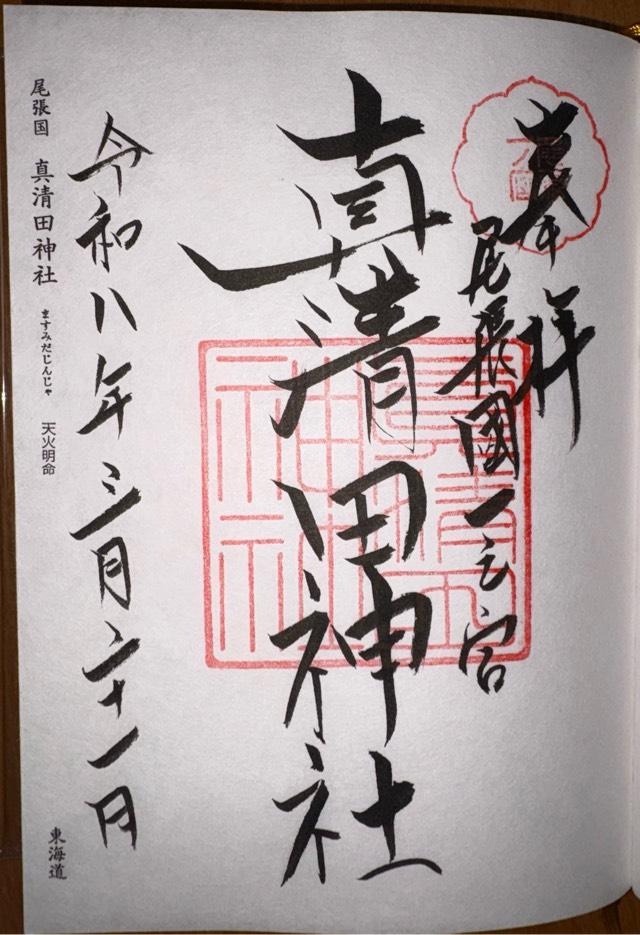 奉拝
尾張國一之宮
真清田神社
真清田
神社
令和八年三月二十一日
尾張国 真清田神社 ますみだじんじゃ 天火明命
東海道